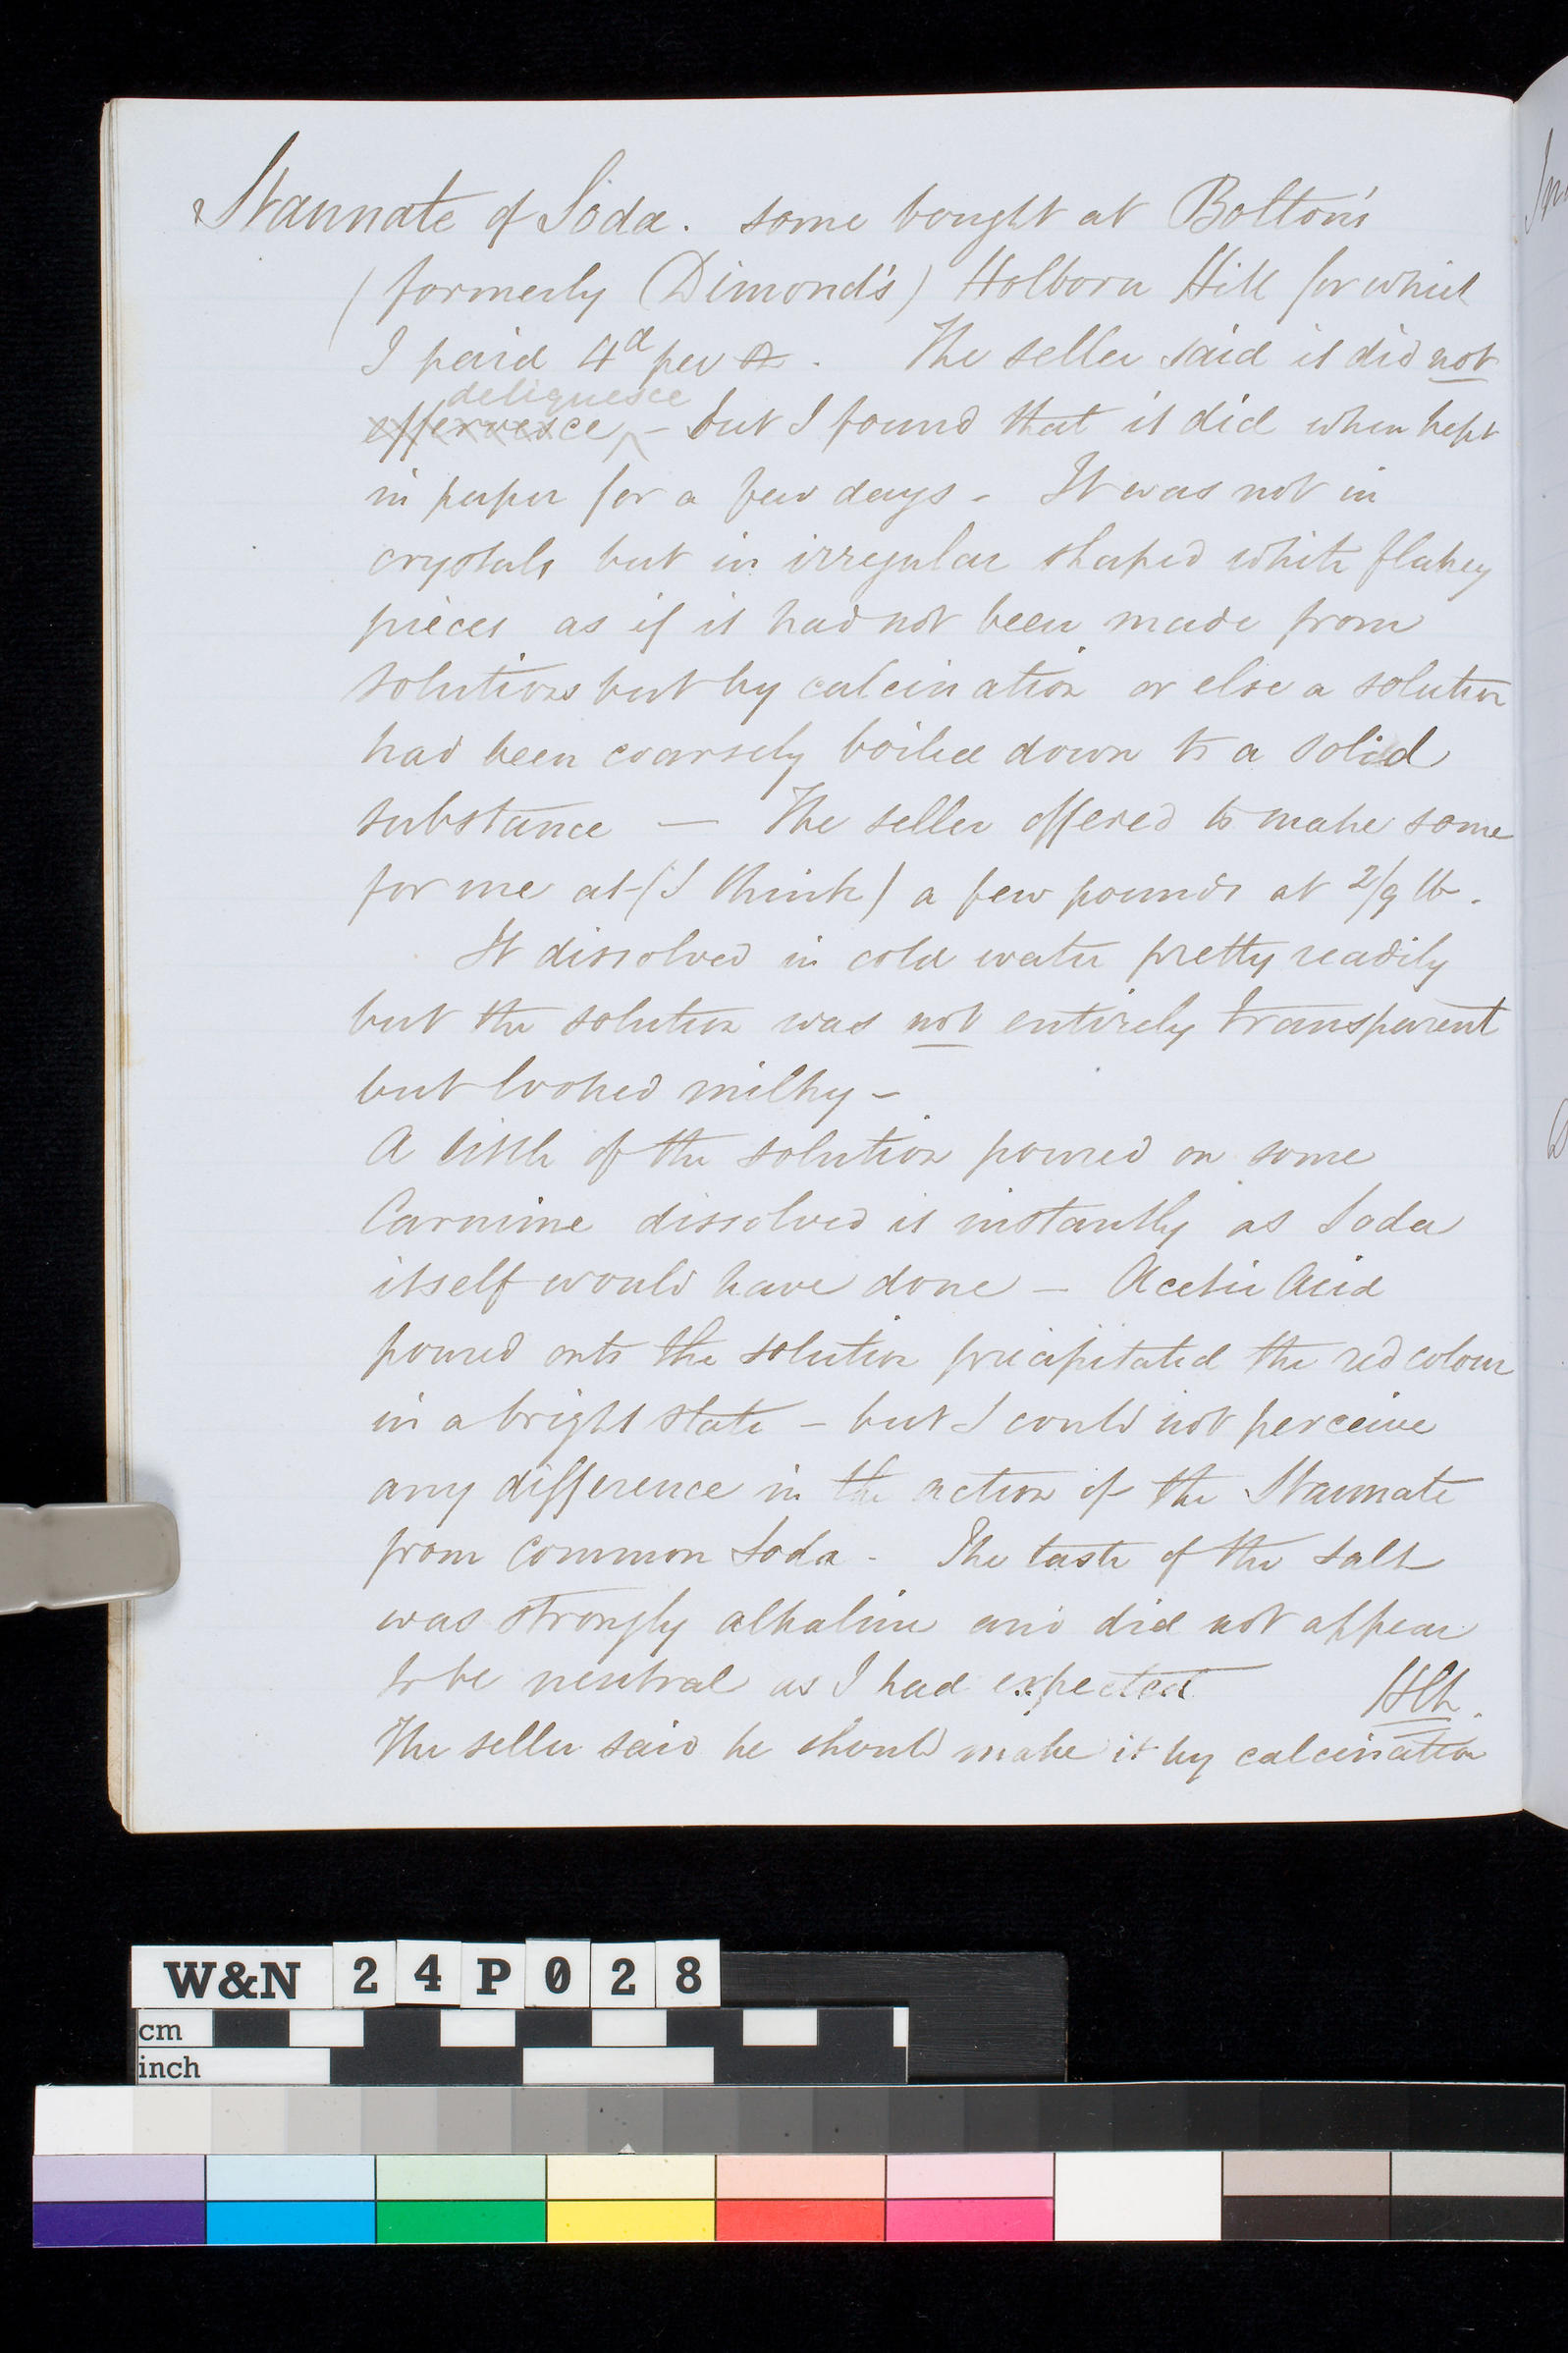 Stannate of Soda. some bought at Bolton's
(formerly (Dimond's) Holborn Hill for which
I paid 4d per oz. The seller said it did not
deliquesce
effervesce, - but I found that it did when kept
in paper for a few days - It was not in
crystals but in irregular shaped white flakey
pieces as if it had not been made from
solutions but by calcination or else a solution
had been coarsely boiled down to a solid
substance — The seller offered to make some
for me at (I think) a few pounds at 2/9 lb.
It dissolved in cold water pretty readily
but the solution was not entirely transparent
but looked milky -
A little of the solution poured on some
Carmine dissolved it instantly as Soda
itself would have done - Acetic Acid
poured onto the solution precipitated the red colour
in a bright state - but I could not perceive
any difference in the action of the Stannate
from common Soda - The taste of the salt
was strongly alkaline and did not appear
to be neutral as I had expected
The seller said he should make it by calcination
W&N 24P028
cm
inch